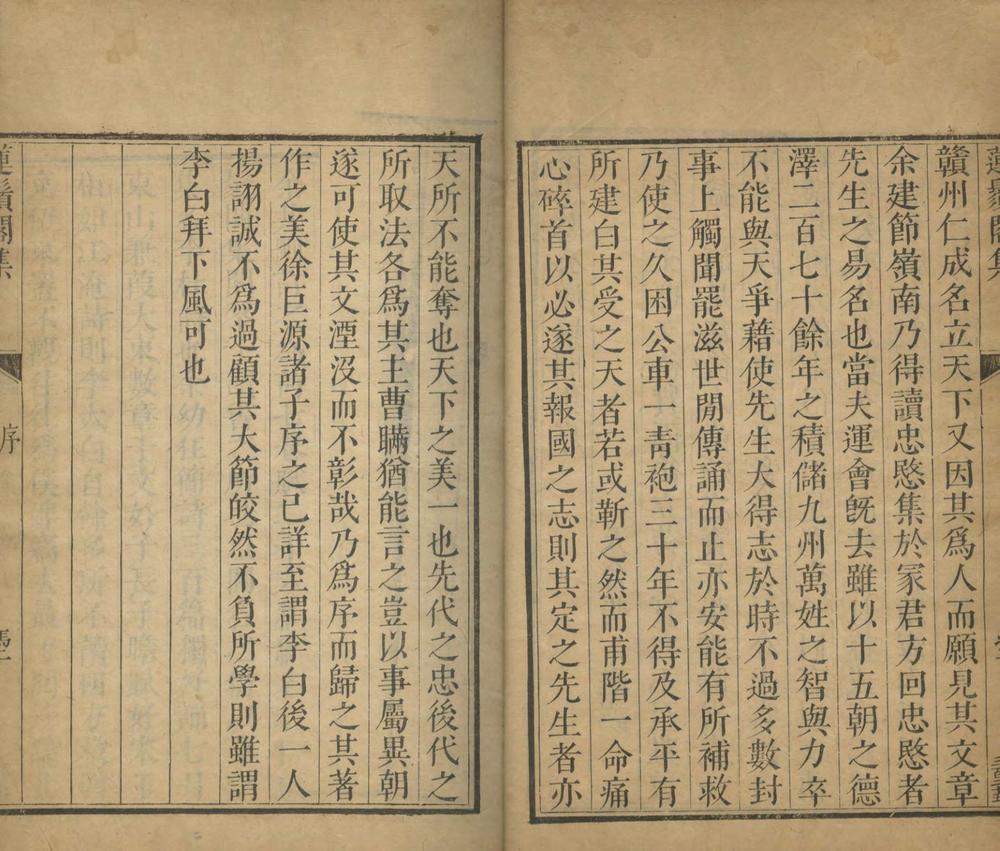 贛州仁成名立天下又因其爲人而願見其文章
余建節嶺南乃得讀忠愍集於冢君方回忠愍者
先生之易名也當夫運會旣去雖以十五朝之德
澤二百七十餘年之積儲九州萬姓之智與力卒
不能與天爭藉使先生大得志於時不過多數封
事上觸聞罷滋世閒傳誦而止亦安能有所補救
乃使之久困公車一靑袍三十年不得及承平有
所建白其受之天者若或靳之然而甫階一命痛
心碎首以必遂其報國之志則其定之先生者亦
天所不能奪也天下之美一也先代之忠後代之
所取法各爲其主曹瞞猶能言之豈以事屬異朝
遂可使其文湮沒而不彰哉乃爲序而歸之其著
作之美徐巨源諸子序之已詳至謂李白後一人
揚詡誠不爲過顧其大節皎然不負所學則雖謂
李白拜下風可也
蓮鬚閣集
序